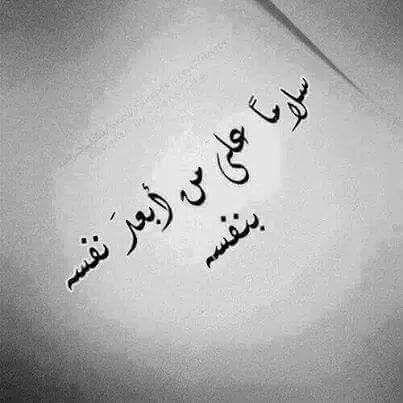 سلاماً على من أبعدَ نفسه
بنفسه